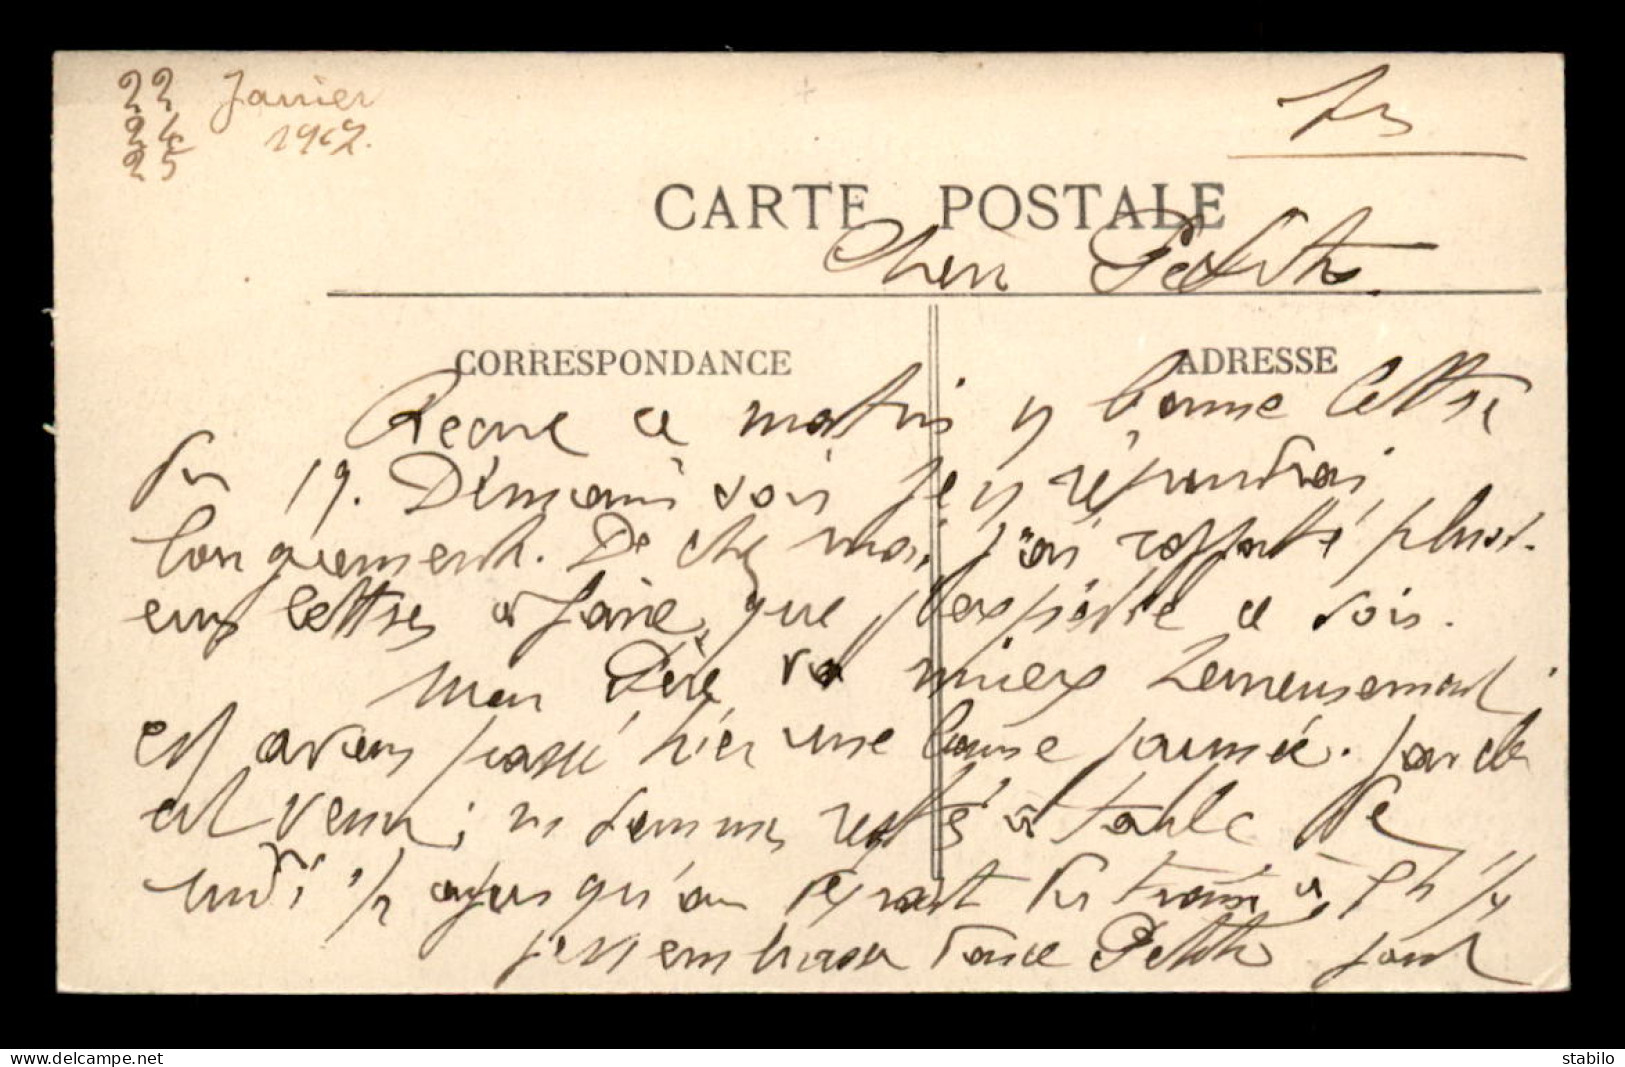 22 Janvier
24 1907.
25
75
CARTE POSTALE
Cher Petite.
CORRESPONDANCE
ADRESSE
Reçue ce matin bonne lettre
du 19. Demain soir je y répondrai
longuement. De chez moi j'ai rapporté plusi-
eurs lettres à faire, que j'expédie ce soir.
Mon Père va mieux heureusement
et avons passé hier une bonne journée.
est venu; ns sommes restés à table de
midi 1/2 jusqu'au départ du train à 5h 1/4
je embrasse Petite
www.delcampe.net
stabilo